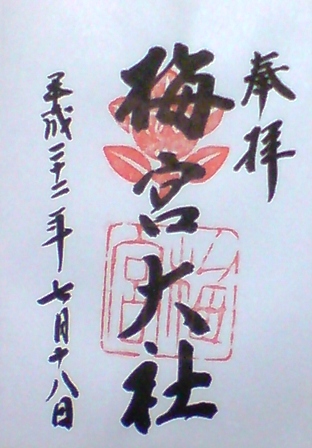 奉拝
梅宮大社
梅宮
平成二十二年七月十八日